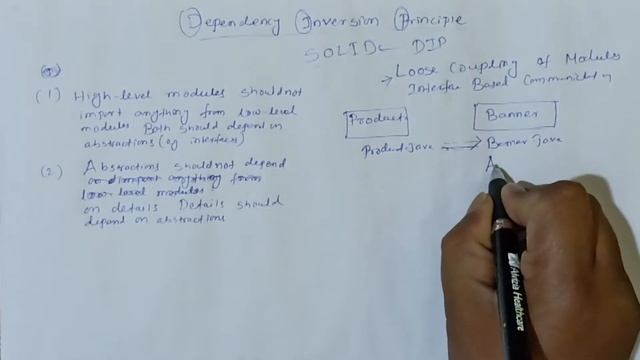 Dependency Inversion Principle
SOLID DIP
Loose Coupling of Modules
Interface Based
(1) High-level modules should not
import anything from low-level
modules Both should depend on
abstractions (eg interfaces)
Product
Banner
Product.java
Banner.java
A
(2) Abstractions should not depend
import anything from
low level modules
on details Details should
depend on abstractions
Alviza Healthcare